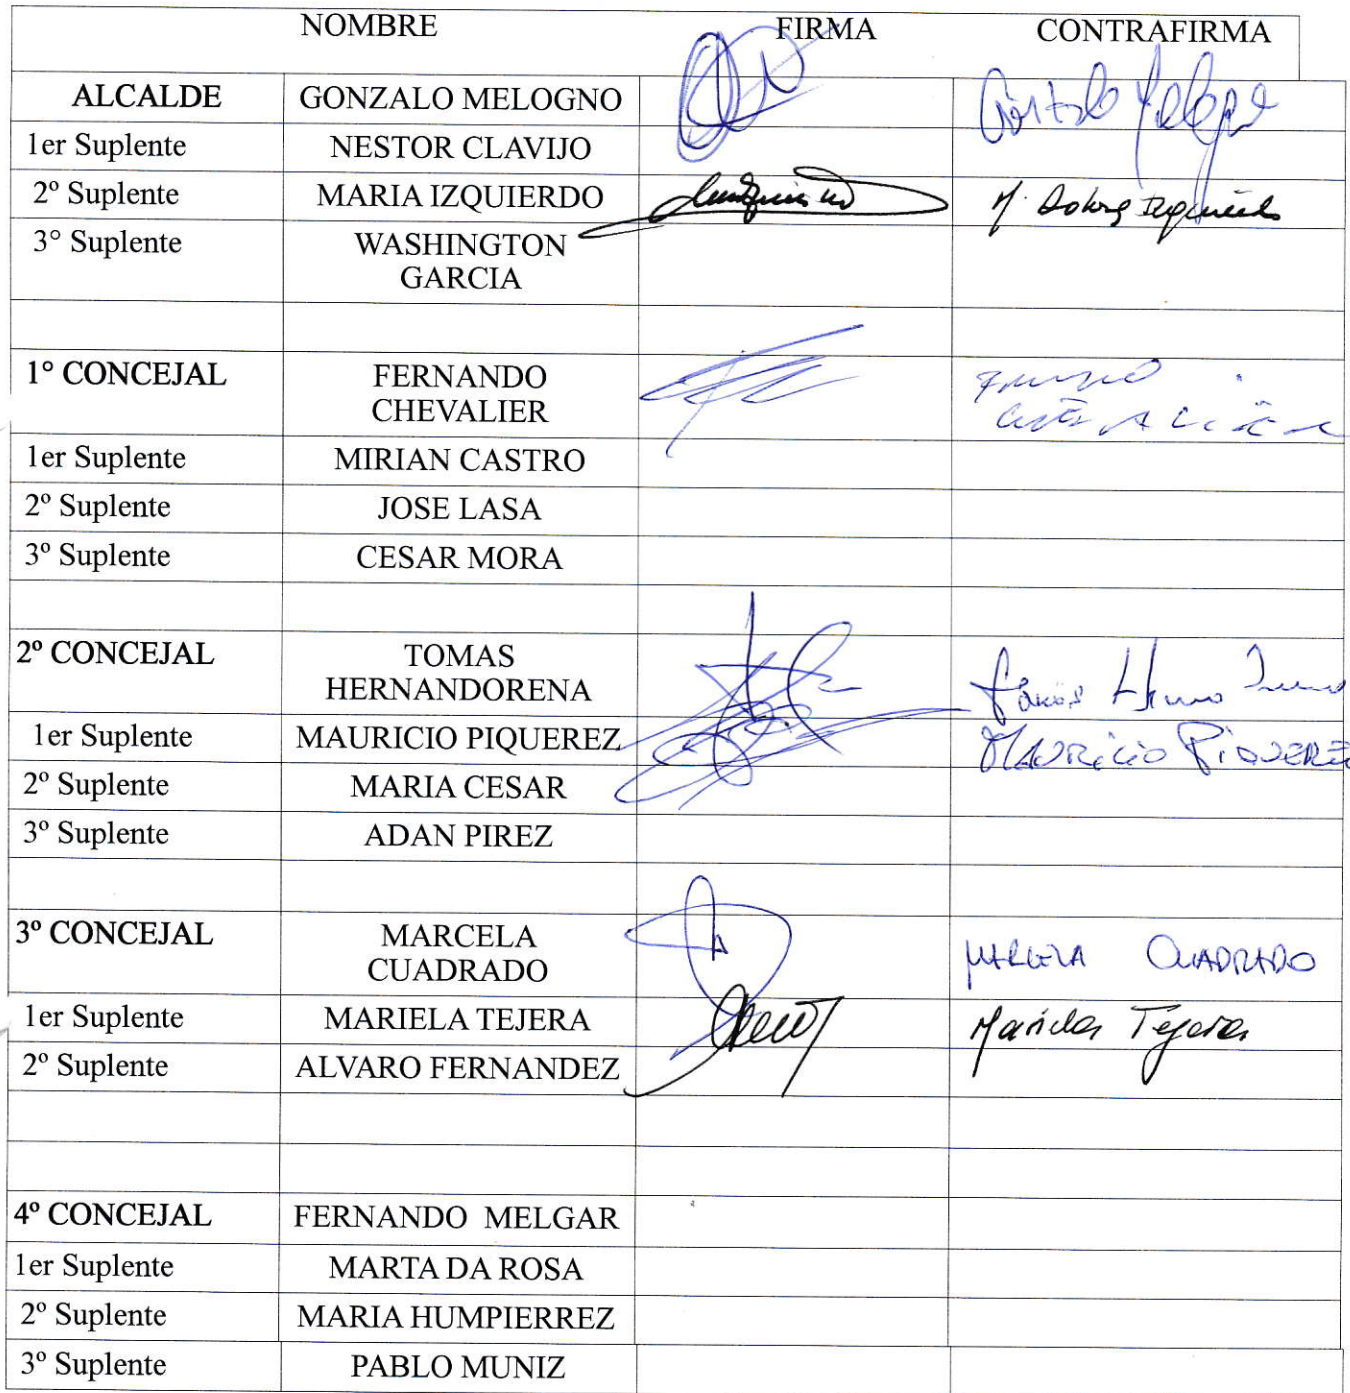 NOMBRE FIRMA CONTRAFIRMA
ALCALDE GONZALO MELOGNO Gonzalo Melogno
1er Suplente NESTOR CLAVIJO
2º Suplente MARIA IZQUIERDO M. Dolores Izquierdo
3° Suplente WASHINGTON
GARCIA
1° CONCEJAL FERNANDO
CHEVALIER
1er Suplente MIRIAN CASTRO
2º Suplente JOSE LASA
3º Suplente CESAR MORA
2º CONCEJAL TOMAS
HERNANDORENA Tomás
1er Suplente MAURICIO PIQUEREZ MAURICIO PIQUEREZ
2º Suplente MARIA CESAR
3º Suplente ADAN PIREZ
3º CONCEJAL MARCELA
CUADRADO MARCELA CUADRADO
1er Suplente MARIELA TEJERA Mariela Tejera
2º Suplente ALVARO FERNANDEZ
4º CONCEJAL FERNANDO MELGAR
1er Suplente MARTA DA ROSA
2º Suplente MARIA HUMPIERREZ
3º Suplente PABLO MUNIZ